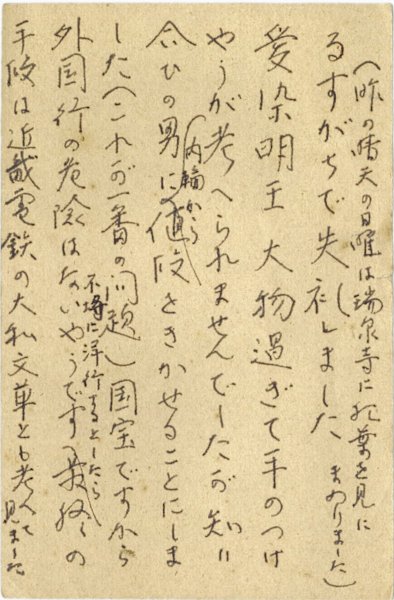 (昨の晴天の日曜は瑞泉寺に紅葉を見に
まゐりました)
るすがちで失礼しました
愛染明王 大物過ぎて手のつけ
やうが考へられませんでしたが 知り
合ひの男に(内輪から)値段をきかせることにしま
した(これが一番の問題) 国宝ですから
外国行の危険はないやうです(最後の
不埒に洋行するとしたら
手段は近畿電鉄の大和文華とも考へて
見ました